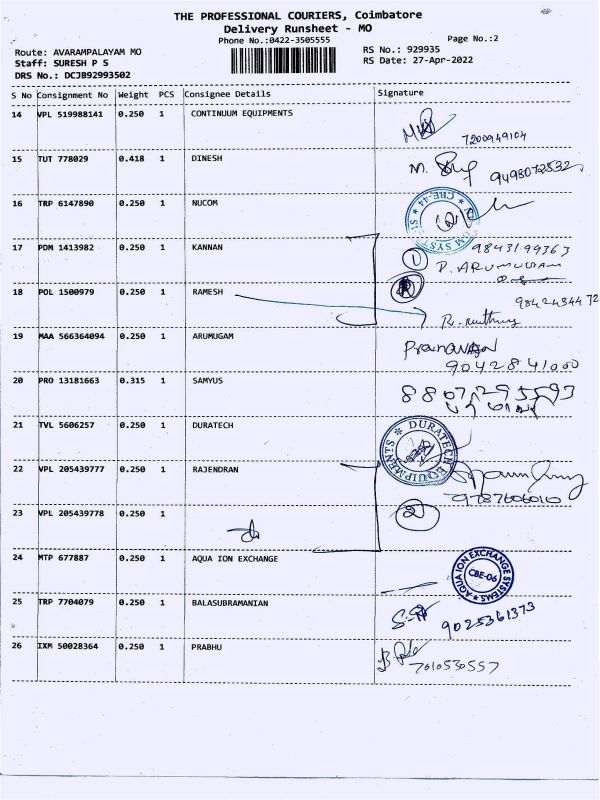 THE PROFESSIONAL COURIERS, Coimbatore
Delivery Runsheet - MO
Phone No.:0422-3505555
Page No.:2
Route: AVARAMPALAYAM MO
RS No.: 929935
Staff: SURESH P S
RS Date: 27-Apr-2022
DRS No.: DCJB92993502
S No Consignment No Weight PCS Consignee Details Signature
14 VPL 519988141 0.250 1 CONTINUUM EQUIPMENTS
7200949104
15 TUT 778029 0.418 1 DINESH
9498072532
16 TRP 6147890 0.250 1 NUCOM
CBE-44
17 PDM 1413982 0.250 1 KANNAN
9843199363
1 P. ARUMUGAM
18 POL 1500979 0.250 1 RAMESH
9842434472
19 MAA 566364094 0.250 1 ARUMUGAM
9042841000
20 PRO 13181663 0.315 1 SAMYUS
8807295593
21 TVL 5606257 0.250 1 DURATECH
DURATECH EQUIPMENTS
22 VPL 205439777 0.250 1 RAJENDRAN
9787606010
23 VPL 205439778 0.250 1
2
24 MTP 677887 0.250 1 AQUA ION EXCHANGE
AQUA ION EXCHANGE SYSTEMS
CBE-06
25 TRP 7704079 0.250 1 BALASUBRAMANIAN
9025361373
26 IXM 50028364 0.250 1 PRABHU
7010530557